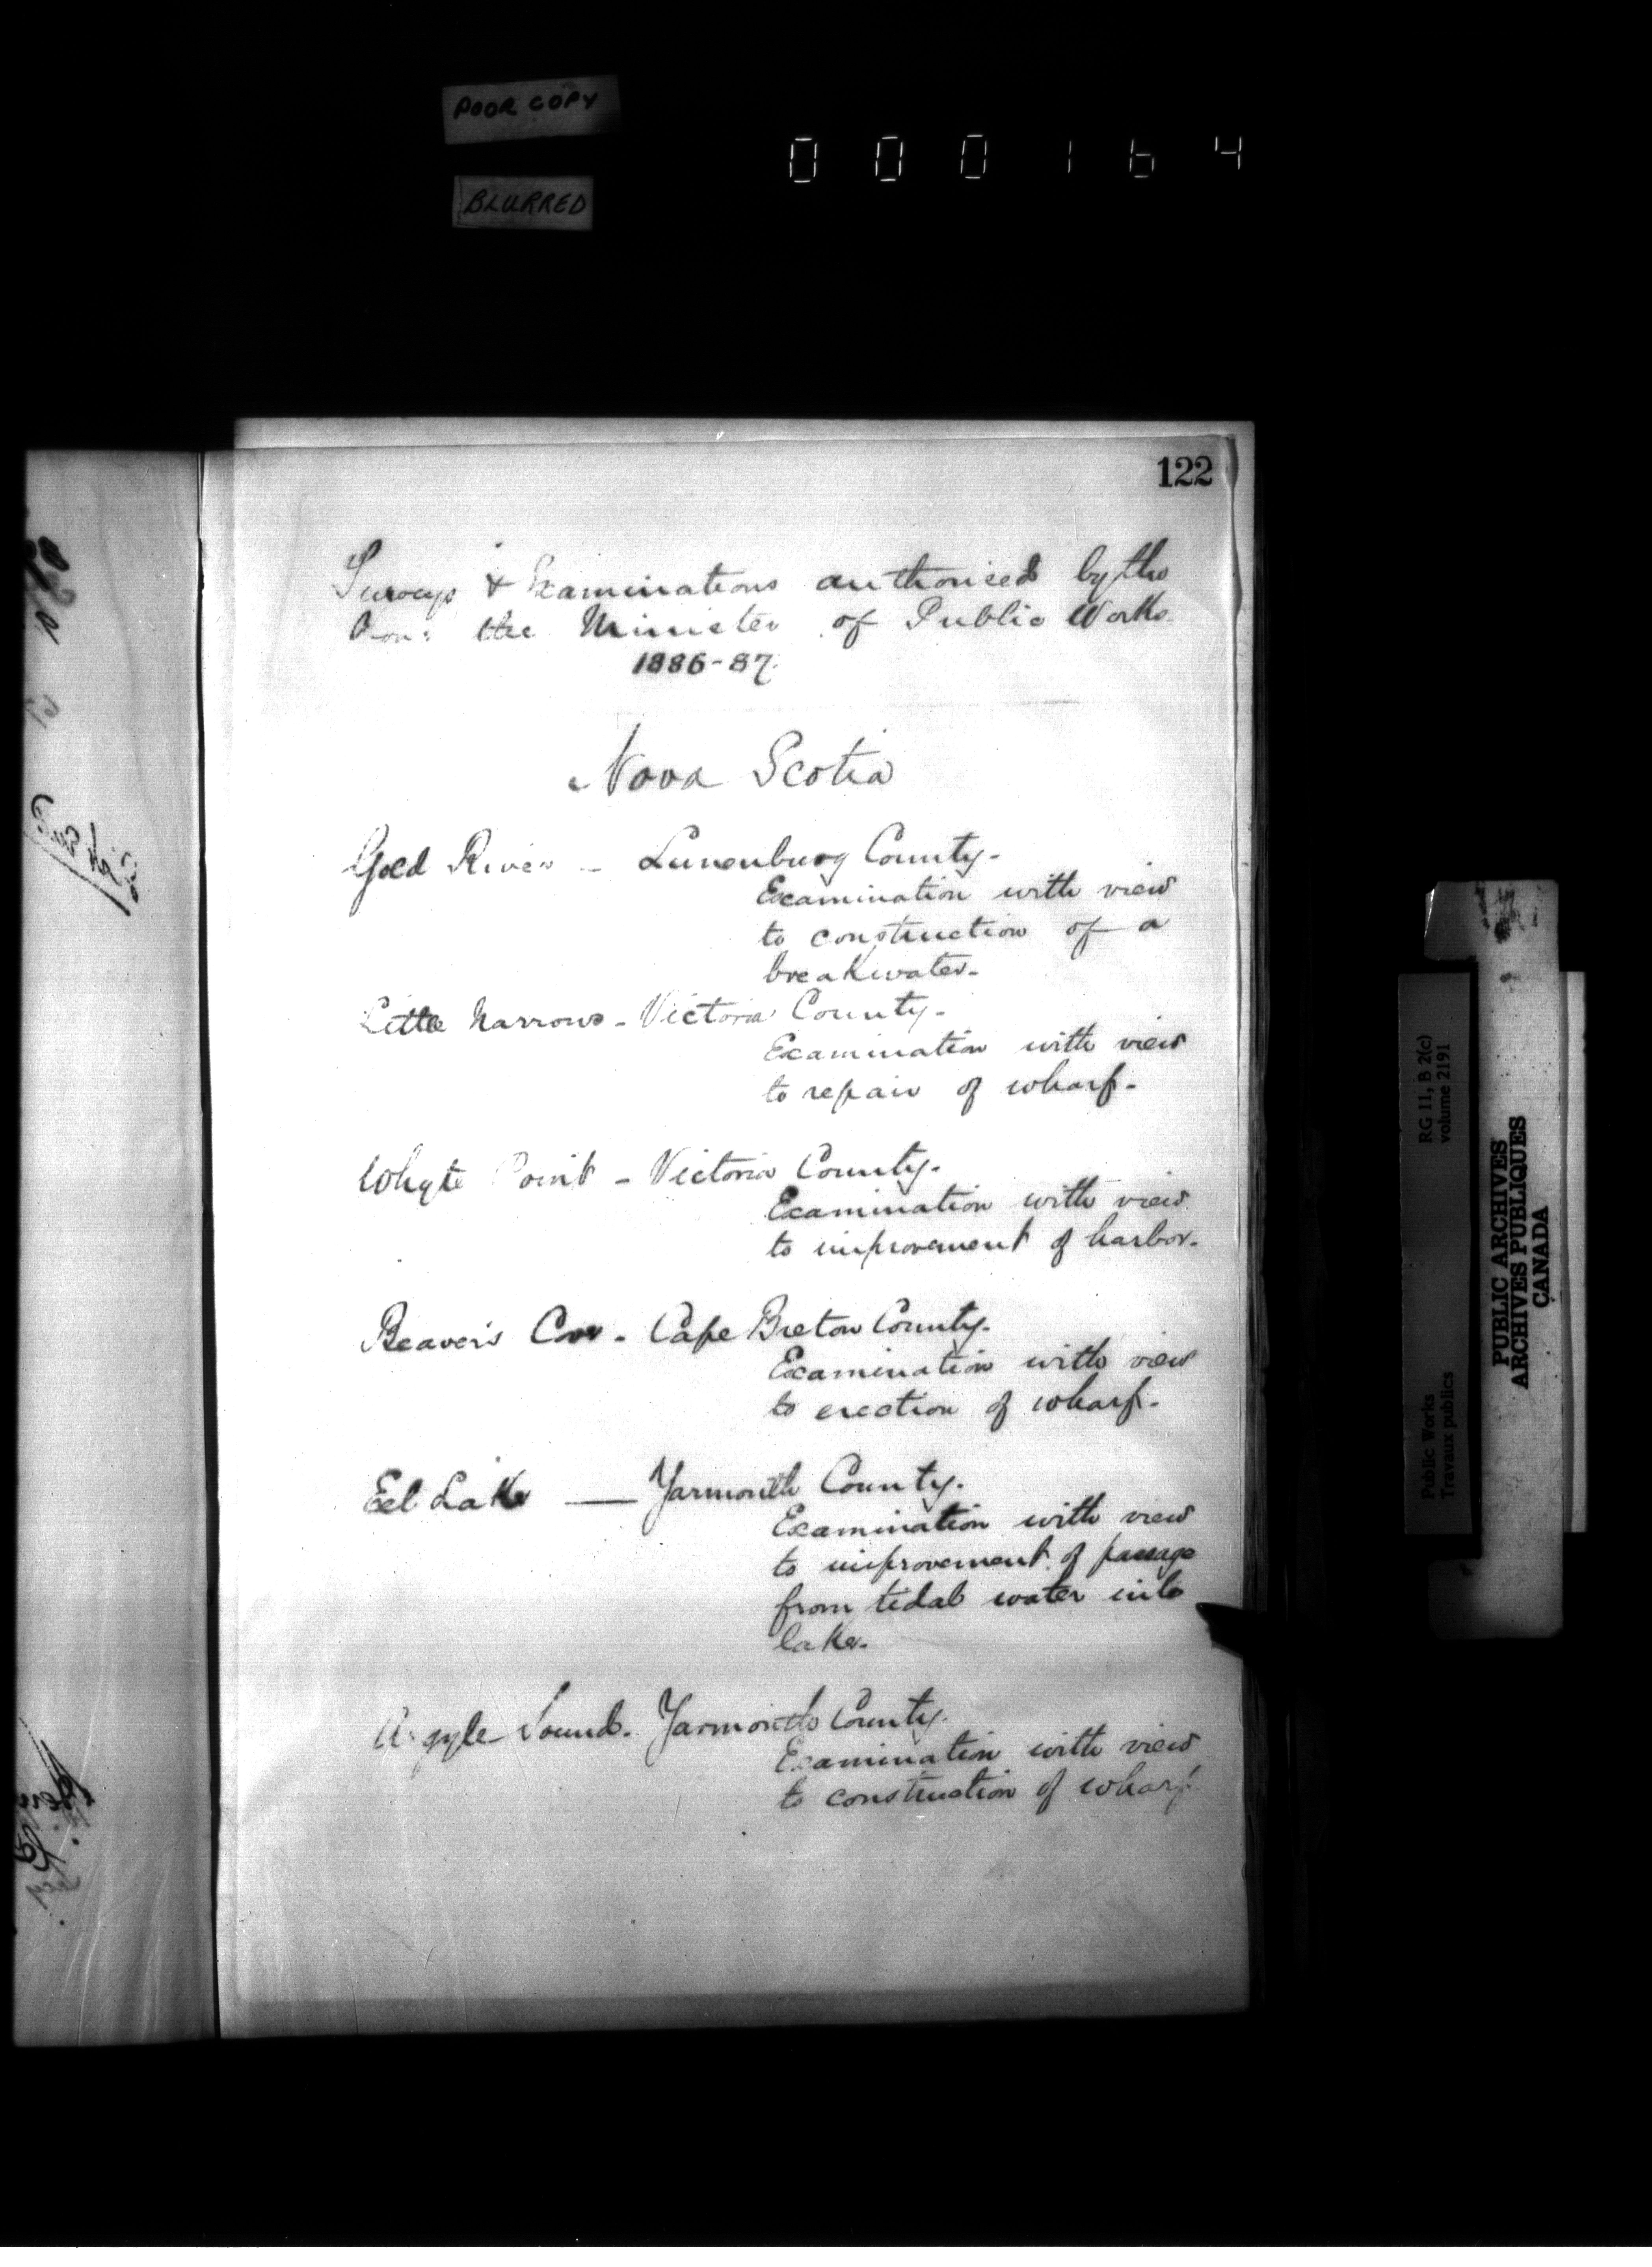 POOR COPY
000164
BLURRED
122
Surveys & Examinations authorised by the
Hon: the Minister of Public Works
1886-87.
Nova Scotia
Gold River - Lunenburg County-
Examination with view
to construction of a
breakwater-
Little Narrows - Victoria County-
Examination with view
to repair of wharf-
Whyte Point - Victoria County-
Examination with view
to improvement of harbor-
Beaver's Cove - Cape Breton County-
Examination with view
to erection of wharf-
Eel Lake — Yarmouth County-
Examination with view
to improvement of passage
from tidal water into
lake-
Argyle Sound. Yarmouth County.
Examination with view
to construction of wharf
RG 11, B 2(c)
volume 2191
Public Works
Travaux publics
PUBLIC ARCHIVES
ARCHIVES PUBLIQUES
CANADA